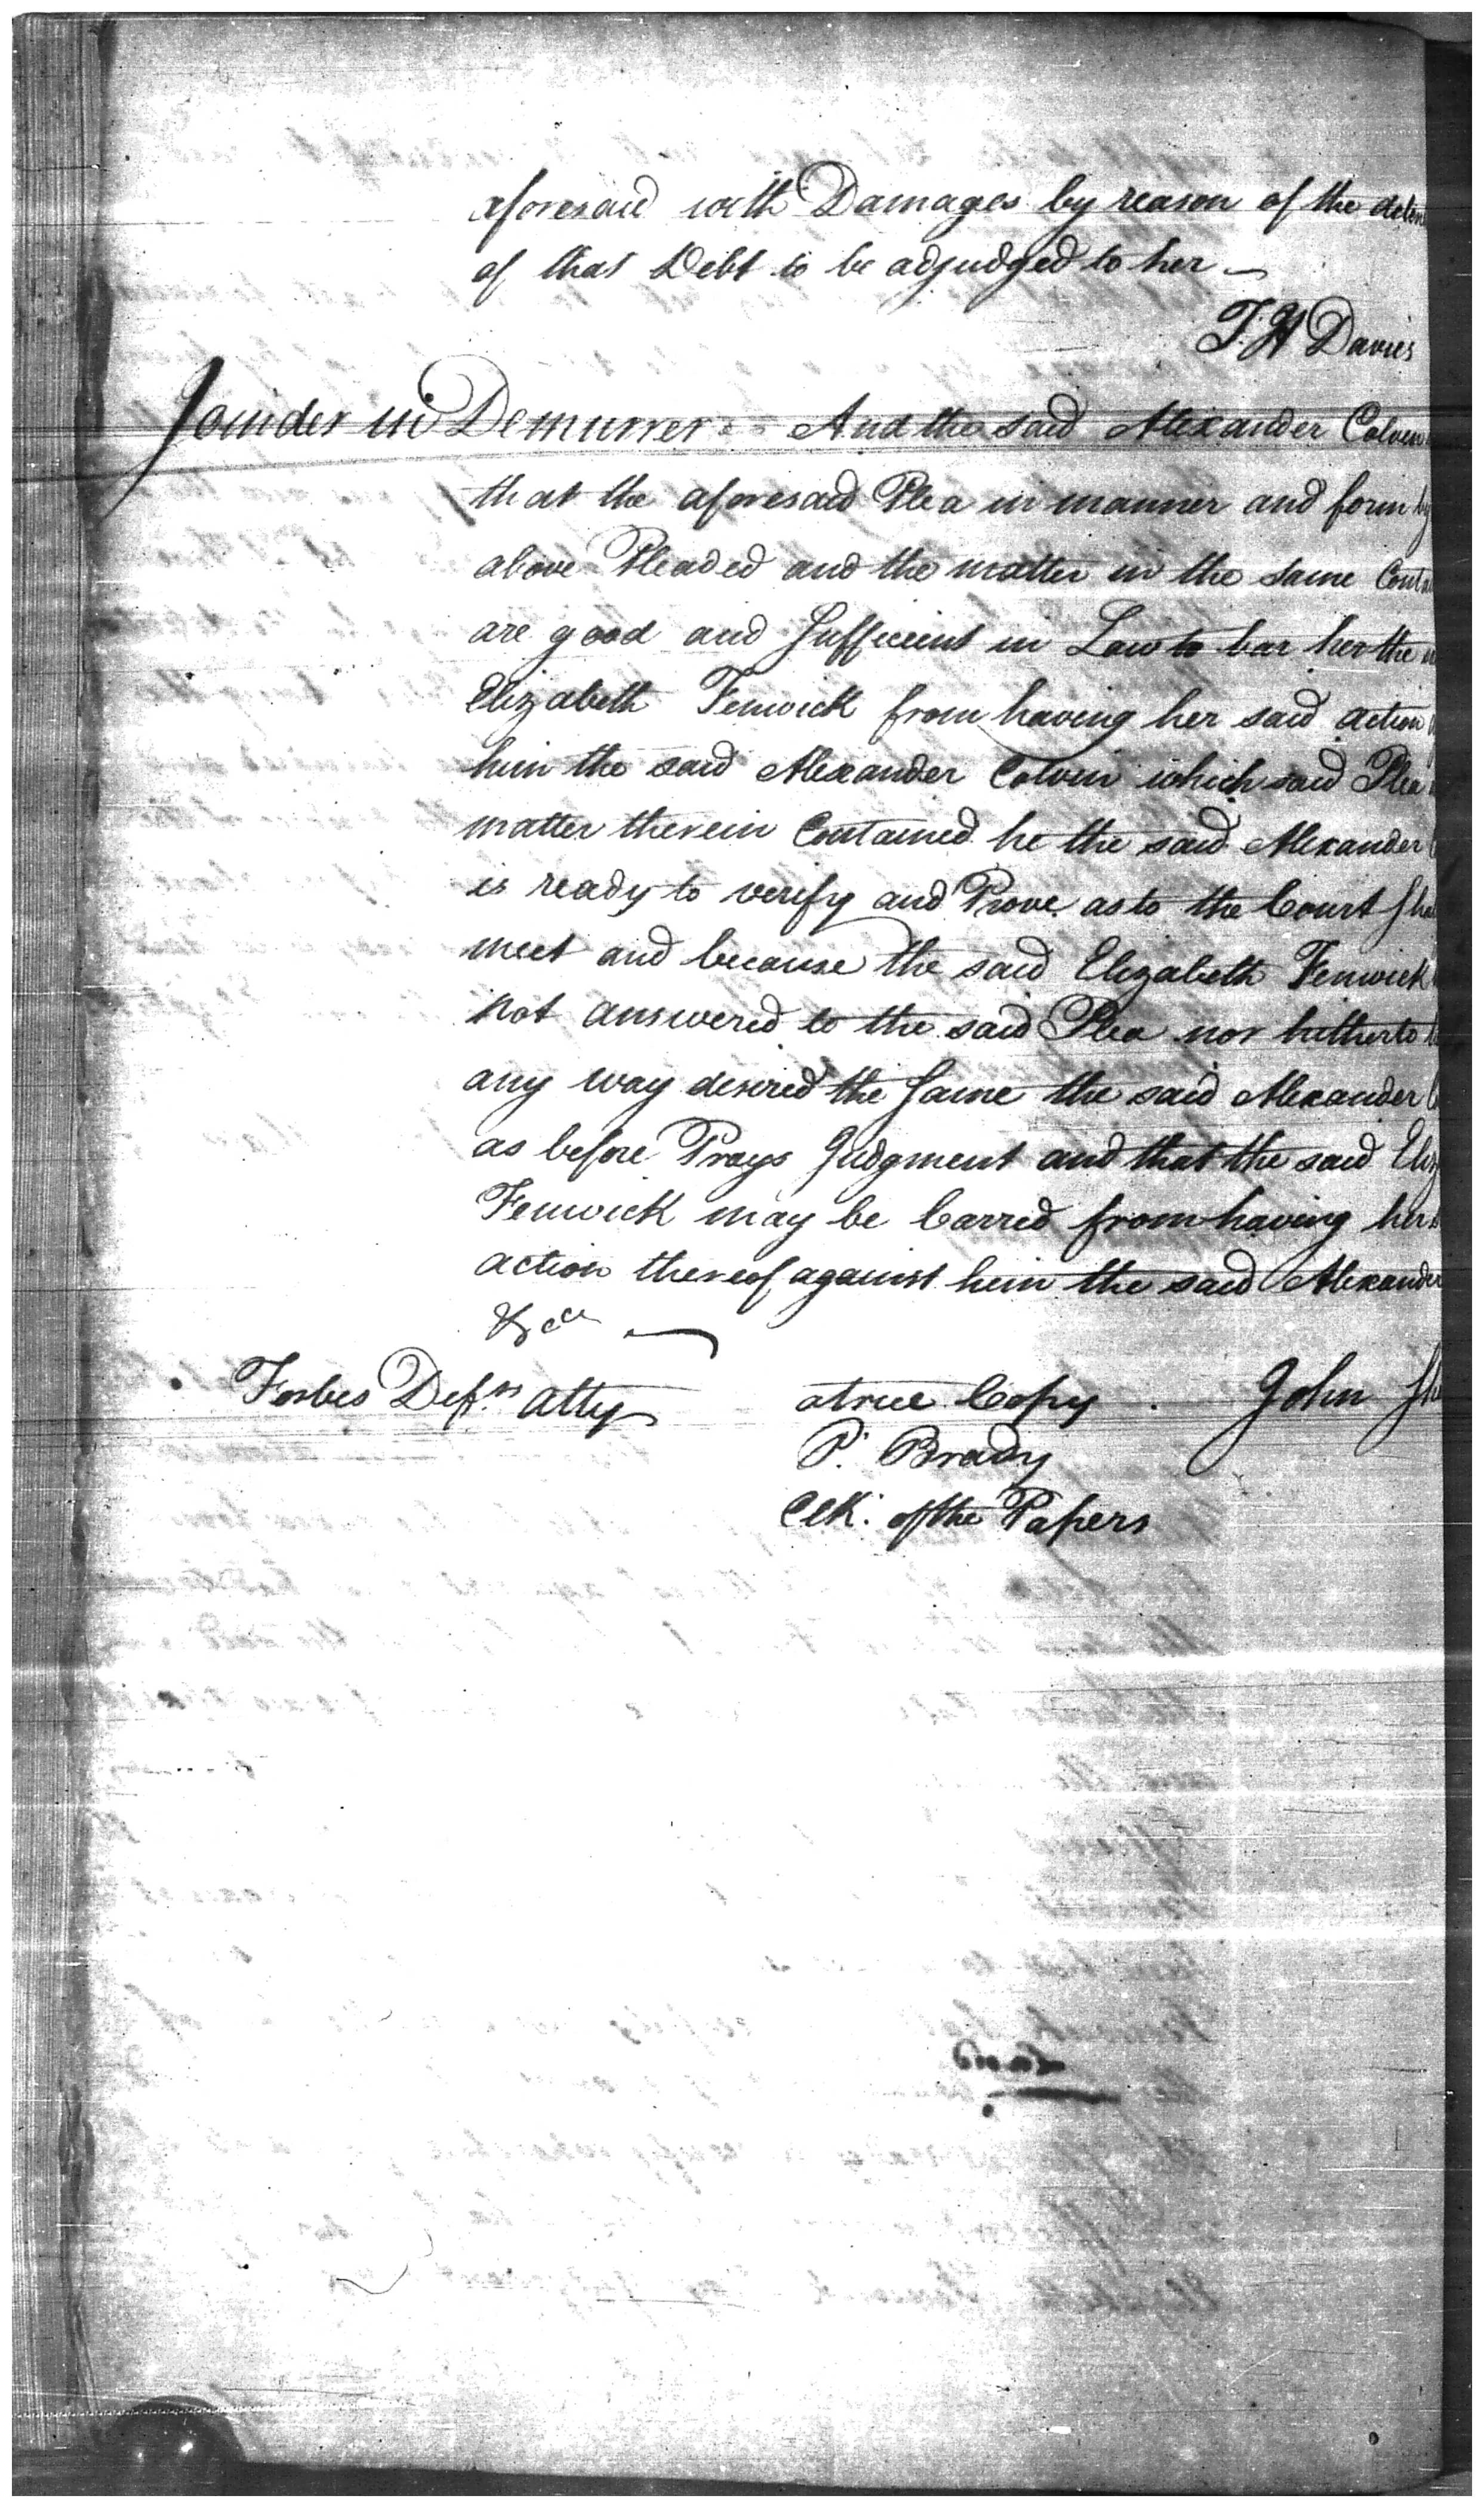 aforesaid with Damages by reason of the deten
of that Debt to be adjudged to her —
T. H Davies
Joinder in Demurrer And the said Alexander Colvin
that the aforesaid Plea in manner and form by
above Pleaded and the matter in the same Conta
are good and Sufficient in Law to bar her the
Elizabeth Fenwick from having her said action
him the said Alexander Colvin which said Plea
matter therein Contained he the said Alexander
is ready to verify and Prove as to the Court Sha
meet and because the said Elizabeth Fenwick
not answered to the said Plea nor hitherto
any way desired the Same the said Alexander
as before Prays Judgment and that the said Eliz
Fenwick may be barred from having her
action thereof against him the said Alexander
&ca —
Forbes Defts atty a true Copy . John Sh
P. Brady
Clk. of the Papers